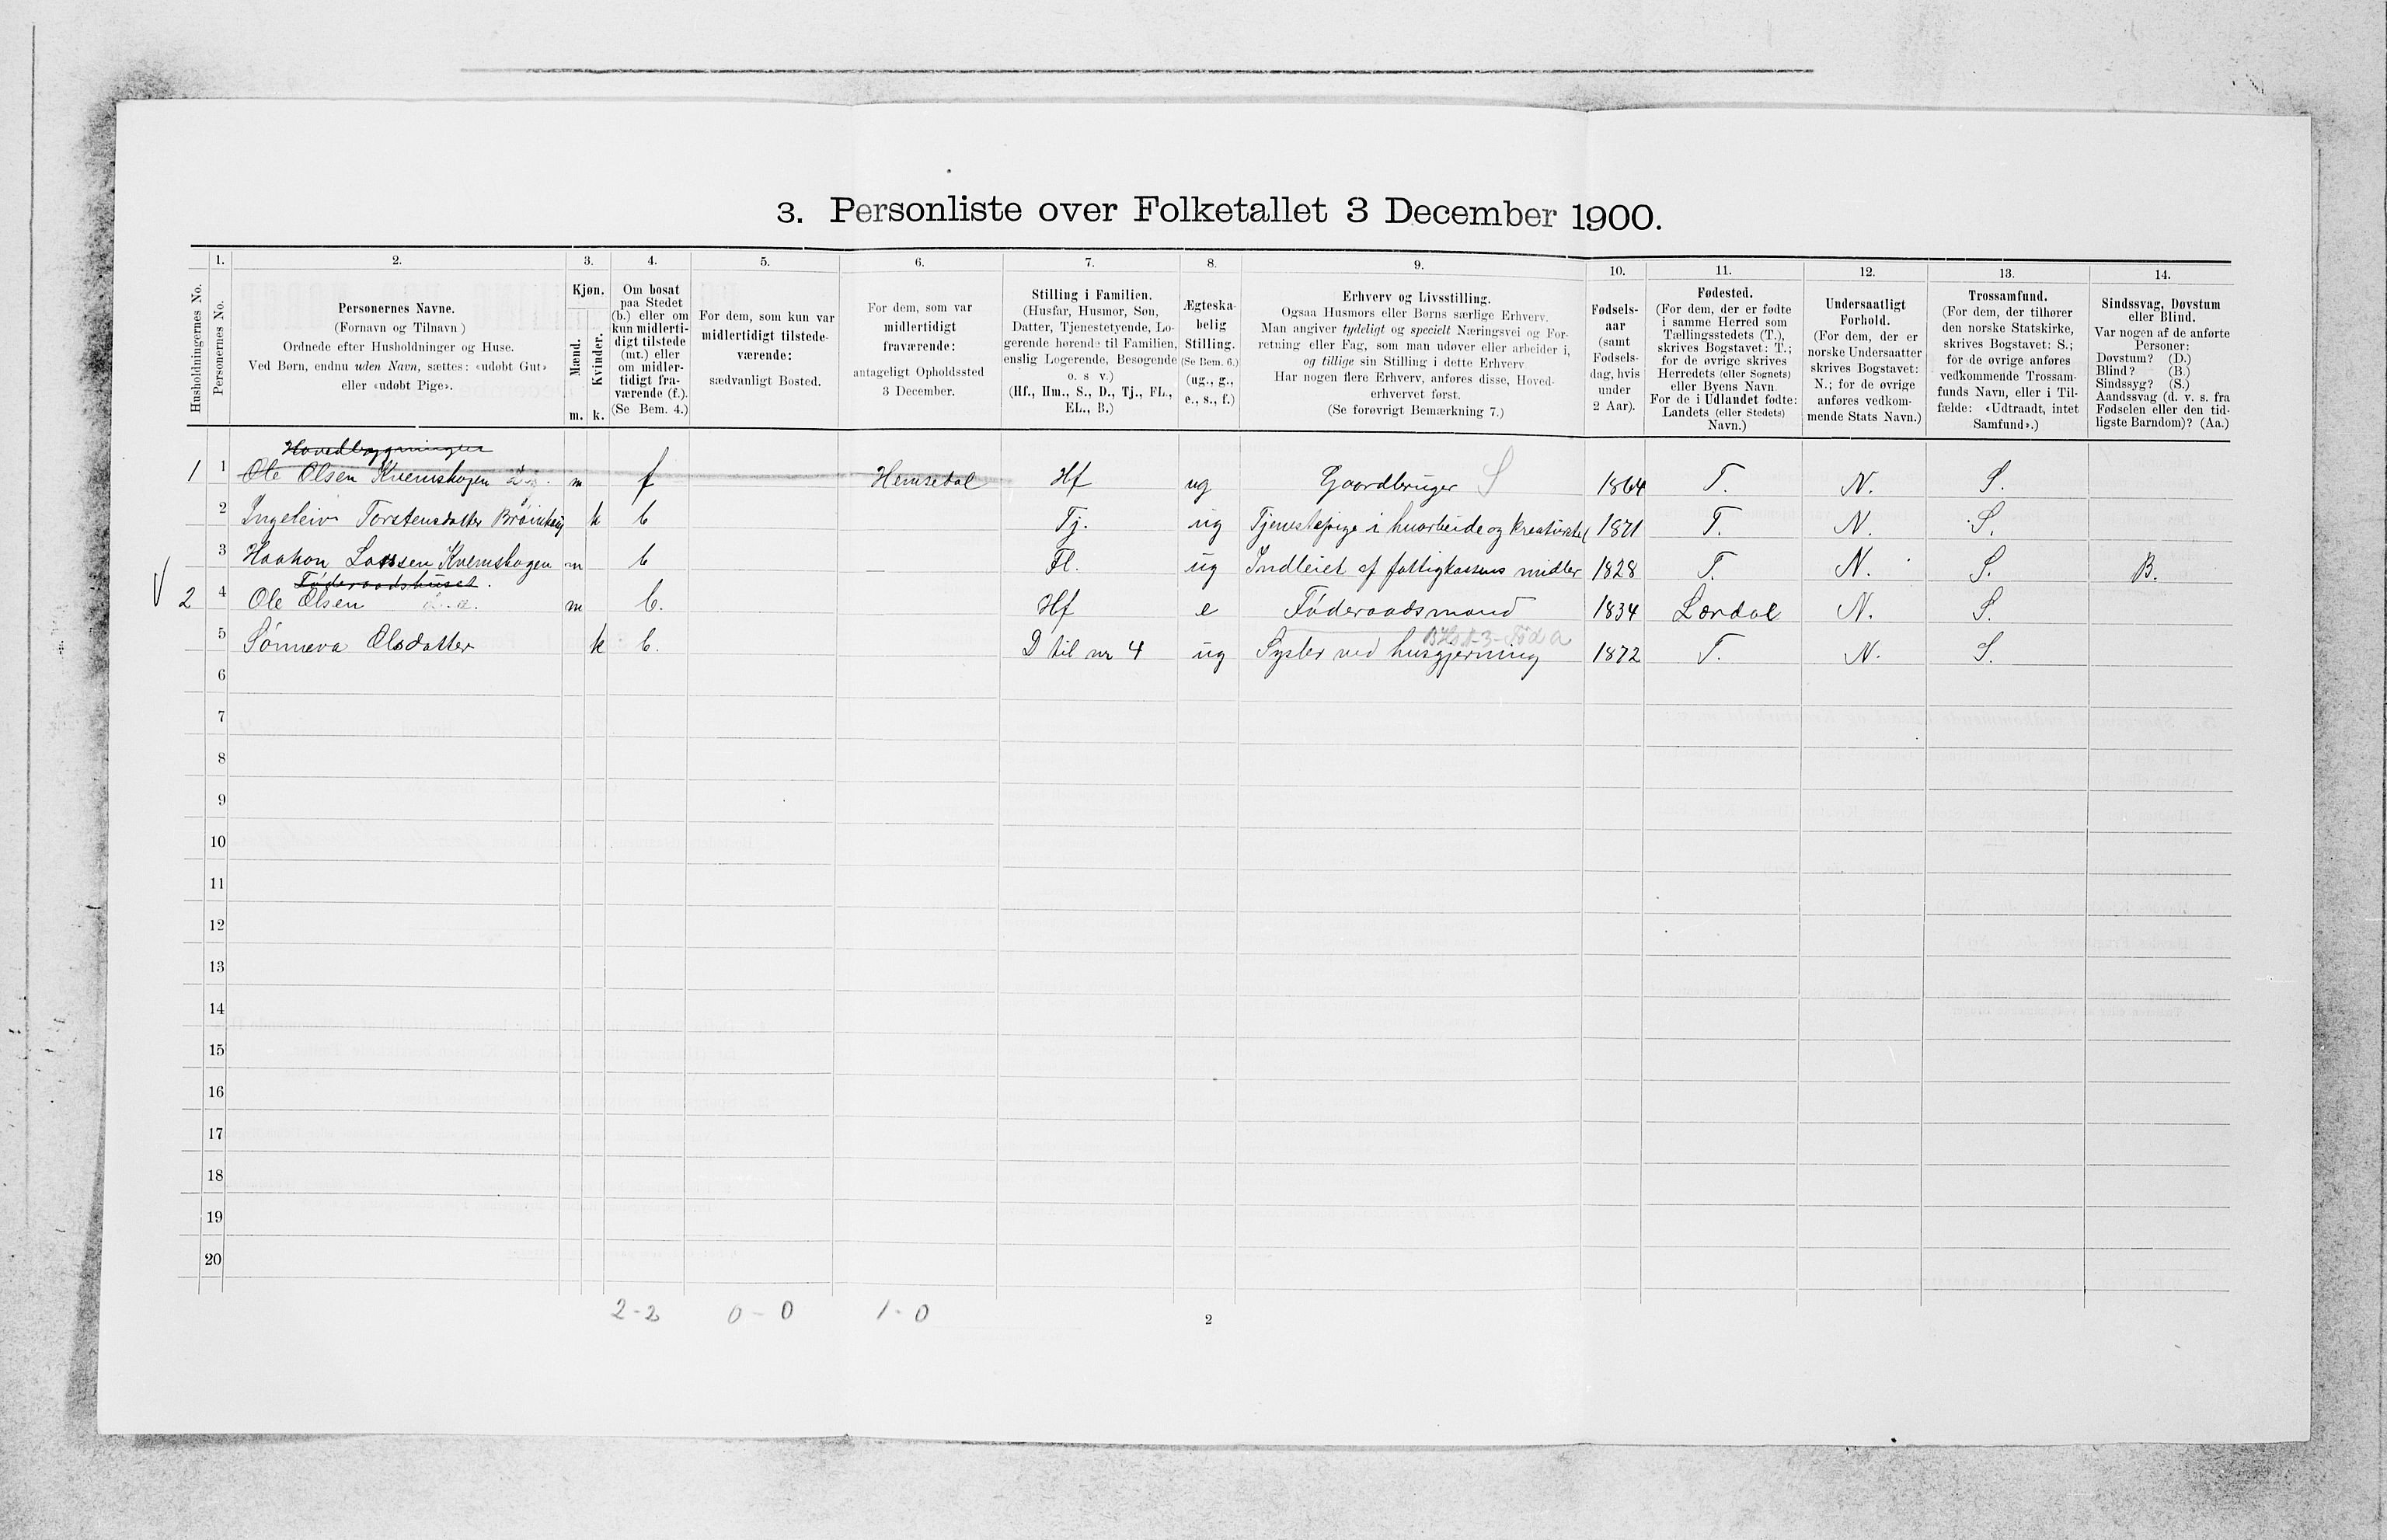 3. Personliste over Folketallet 3 December 1900.
1. 2. 3. 4. 5. 6. 7. 8. 9. 10. 11. 12. 13. 14.
Husholdningernes No.
Personernes No.
Personernes Navne.
(Fornavn og Tilnavn )
Ordnede efter Husholdninger og Huse.
Ved Børn, endnu uden Navn, sættes: «udøbt Gut»
eller «udøbt Pige».
Kjøn.
Mænd.
Kvinder.
m. k.
Om bosat
paa Stedet
(b.) eller om
kun midlerti-
digt tilstede
(mt.) eller
om midler-
tidigt fra-
værende (f.).
(Se Bem. 4.)
For dem, som kun var
midlertidigt tilstede-
værende:
sædvanligt Bosted.
For dem, som var
midlertidigt
fraværende:
antageligt Opholdssted
3 December.
Stilling i Familien.
(Husfar, Husmor, Søn,
Datter, Tjenestetyende, Lo-
gerende hørende til Familien,
enslig Logerende, Besøgende
o. s v.)
(Hf., Hm., S., D., Tj., FL.,
EL., B.)
Ægteska-
belig
Stilling.
(Se Bem. 6.)
(ug., g.,
e., s., f.)
Erhverv og Livsstilling.
Ogsaa Husmors eller Børns særlige Erhverv.
Man angiver tydeligt og specielt Næringsvei og For-
retning eller Fag, som man udøver eller arbeider i,
og tillige sin Stilling i dette Erhverv
Har nogen flere Erhverv, anføres disse, Hoved-
erhvervet først.
(Se forøvrigt Bemærkning 7.)
Fødsels-
aar
(samt
Fødsels-
dag, hvis
under
2 Aar).
Fødested.
(For dem, der er fødte
i samme Herred som
Tællingsstedets (T.),
skrives Bogstavet: T.;
for de øvrige skrives
Herredets (eller Sognets)
eller Byens Navn
For de i Udlandet fødte:
Landets (eller Stedets)
Navn.)
Undersaatligt
Forhold.
(For dem, der er
norske Undersaatter
skrives Bogstavet:
N.; for de øvrige
anføres vedkom-
mende Stats Navn.)
Trossamfund.
(For dem, der tilhører
den norske Statskirke,
skrives Bogstavet: S.;
for de øvrige anføres
vedkommende Trossam-
funds Navn, eller i Til-
fælde: «Udtraadt, intet
Samfund».)
Sindssvag, Døvstum
eller Blind.
Var nogen af de anførte
Personer:
Døvstum? (D.)
Blind? (B.)
Sindssyg? (S.)
Aandssvag (d. v. s. fra
Fødselen eller den tid-
ligste Barndom)? (Aa.)
Hovedbygningen
1 1 Ole Olsen Kvemshagen m f Hemsedal Hf ug Gaardbruger S 1864 T. N. S.
2 Ingeleiv Torstensdatter k b Tj. ug Tjenestepige i husarbeide og kreaturstel 1871 T. N. S.
3 Haakon Larssen Kvemshagen m b Fl. ug Indleiet af fattigkassens midler 1828 T. N. S. B.
Føderaadshuset.
2 4 Ole Olsen m b. Hf e Føderaadsmand 1834 Lærdal N. S.
5 Sønneva Olsdatter k b. D til nr 4 ug Sysler ved husgjerning 1872 T. N. S.
6
7
8
9
10
11
12
13
14
15
16
17
18
19
20
2-2 0-0 1-0
2